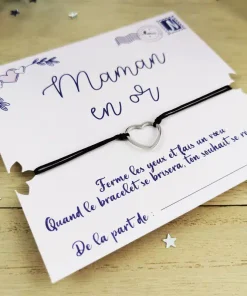 Maman
en or
Ferme les yeux et fais un vœu
Quand le bracelet se brisera, ton souhait se
De la part de :